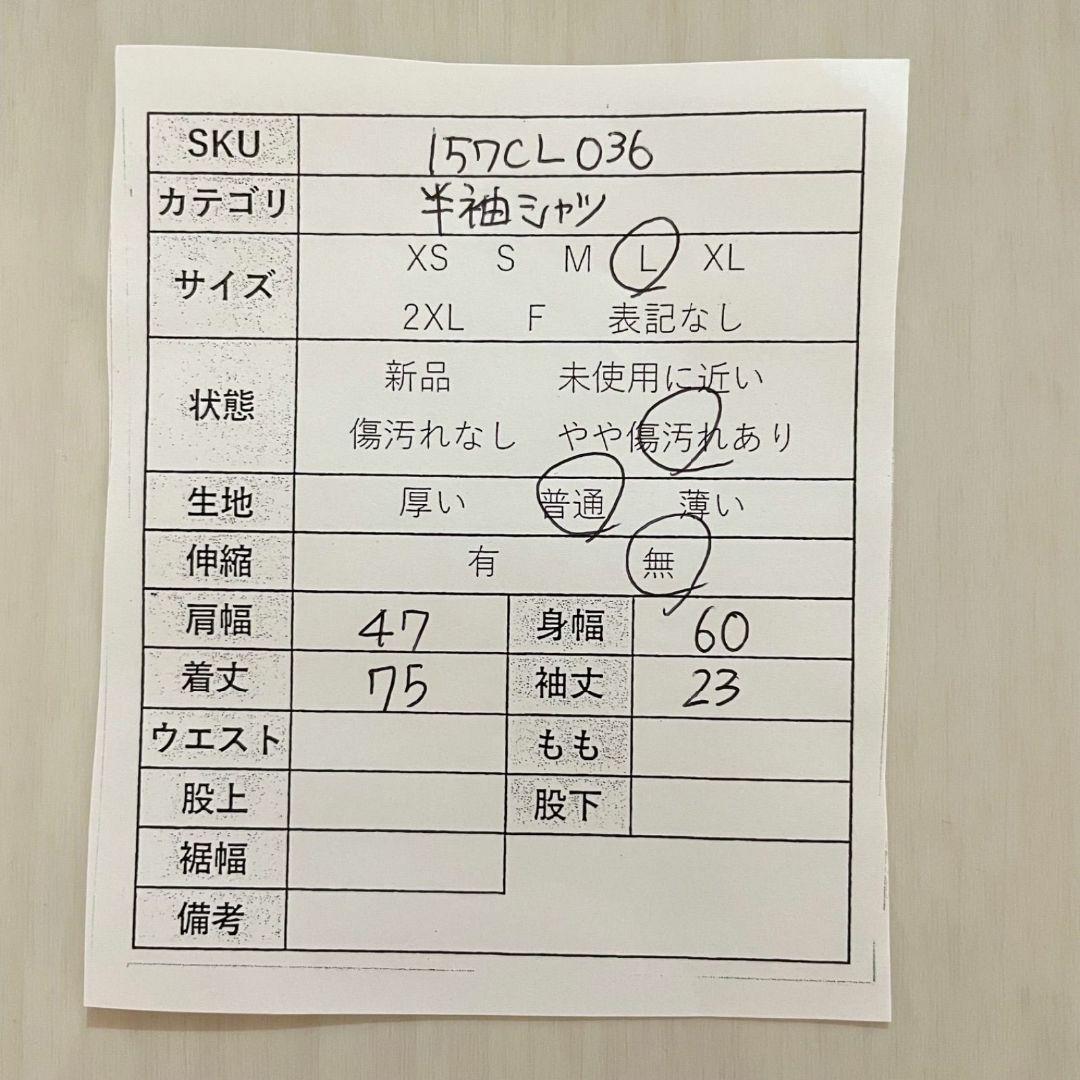 SKU 157CL036
カテゴリ 半袖シャツ
サイズ XS S M L XL
2XL F 表記なし
状態 新品 未使用に近い
傷汚れなし やや傷汚れあり
生地 厚い 普通 薄い
伸縮 有 無
肩幅 47 身幅 60
着丈 75 袖丈 23
ウエスト もも
股上 股下
裾幅
備考